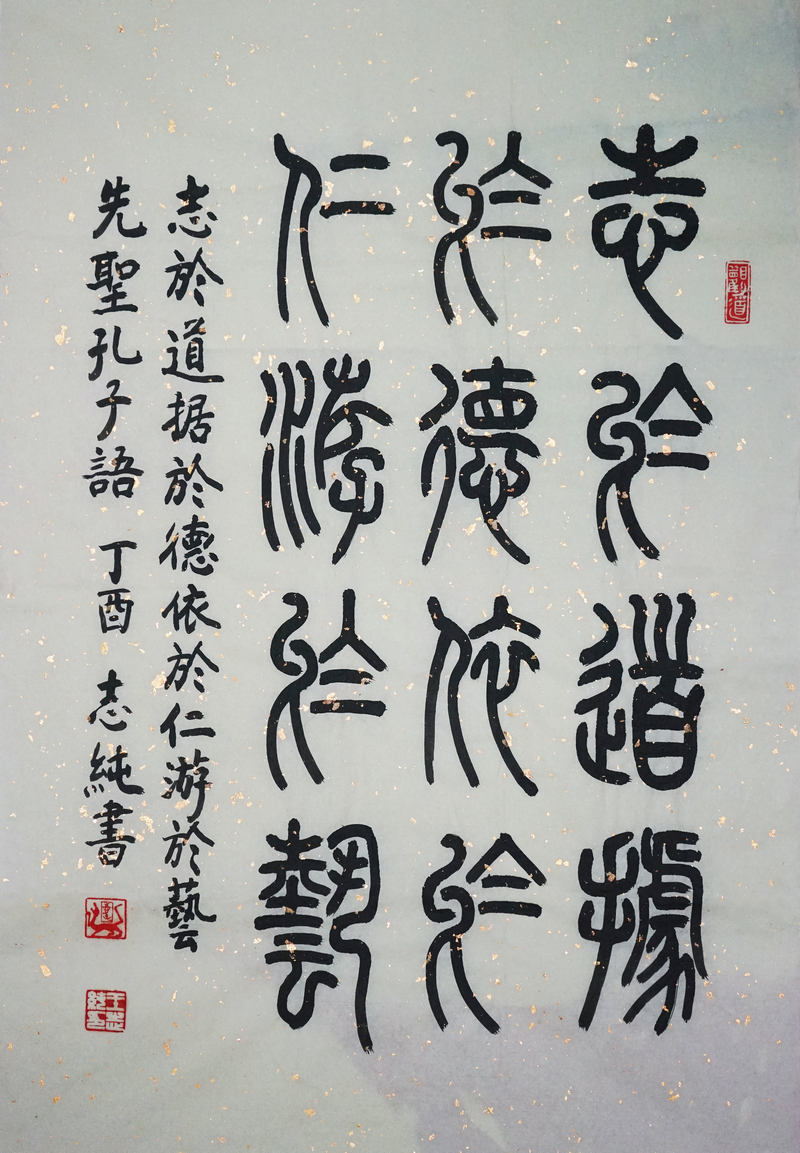 志於道據
於德依於
仁游於藝
志於道据於德依於仁游於藝
先聖孔子語 丁酉 志純書